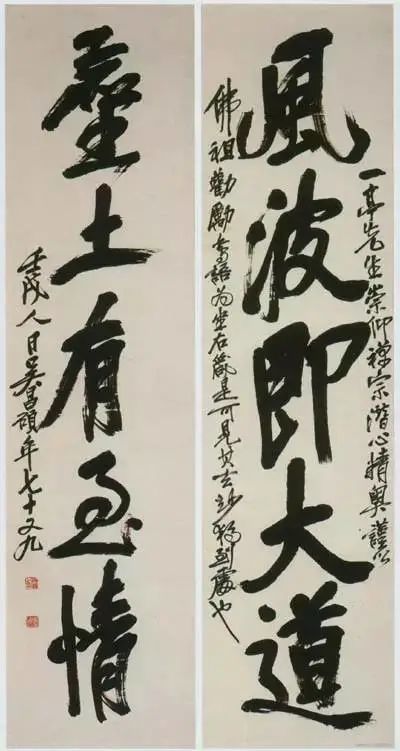 一亭先生崇仰禪宗潛心精奧謹以
風波即大道
佛祖勸勵語为坐右箴是可見其玄妙獨到處也
塵土有至情
壬戌人日吳昌碩年七十又九